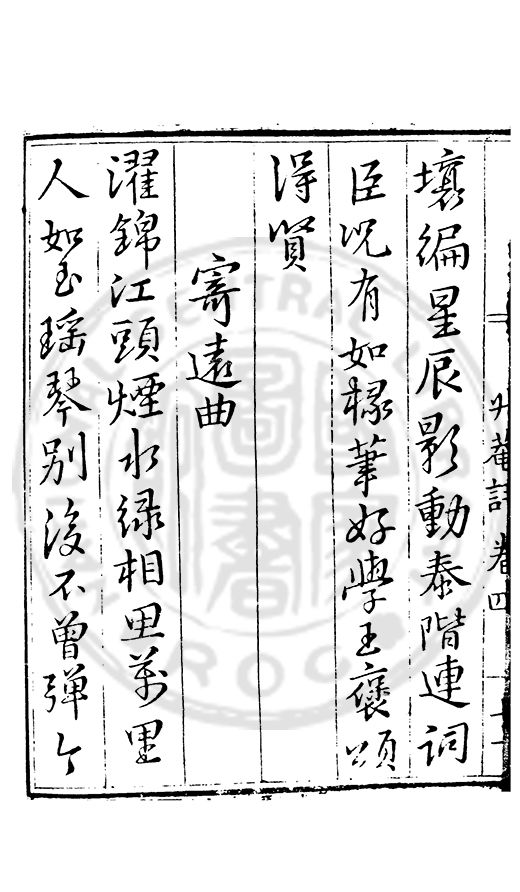 升菴詩卷四
壤徧星辰影動泰階連詞
臣况有如椽筆好學王褒頌
得賢
寄遠曲
濯錦江頭煙水緑相思萬里
人如玉瑶琴別後不曾弹今